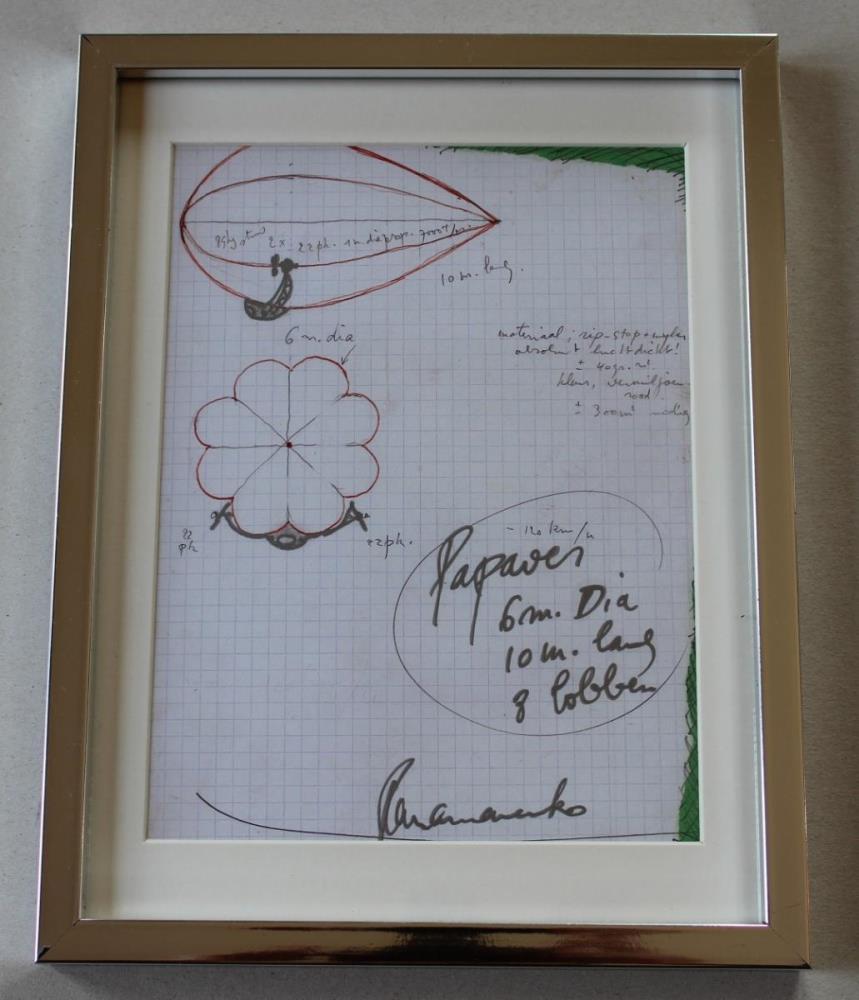 2x 22ph. 1m. diaprop.
10 m. lang.
6 m. dia
materiaal; rip-stop + mylar
absoluut luchtdicht!
± 40gr. m².
kleur, vermiljoen
rood
± 300m² nodig
22
ph
22ph.
~ 120 km/u
Papaver
6m. Dia
10 m. lang
8 lobben
Panamarenko